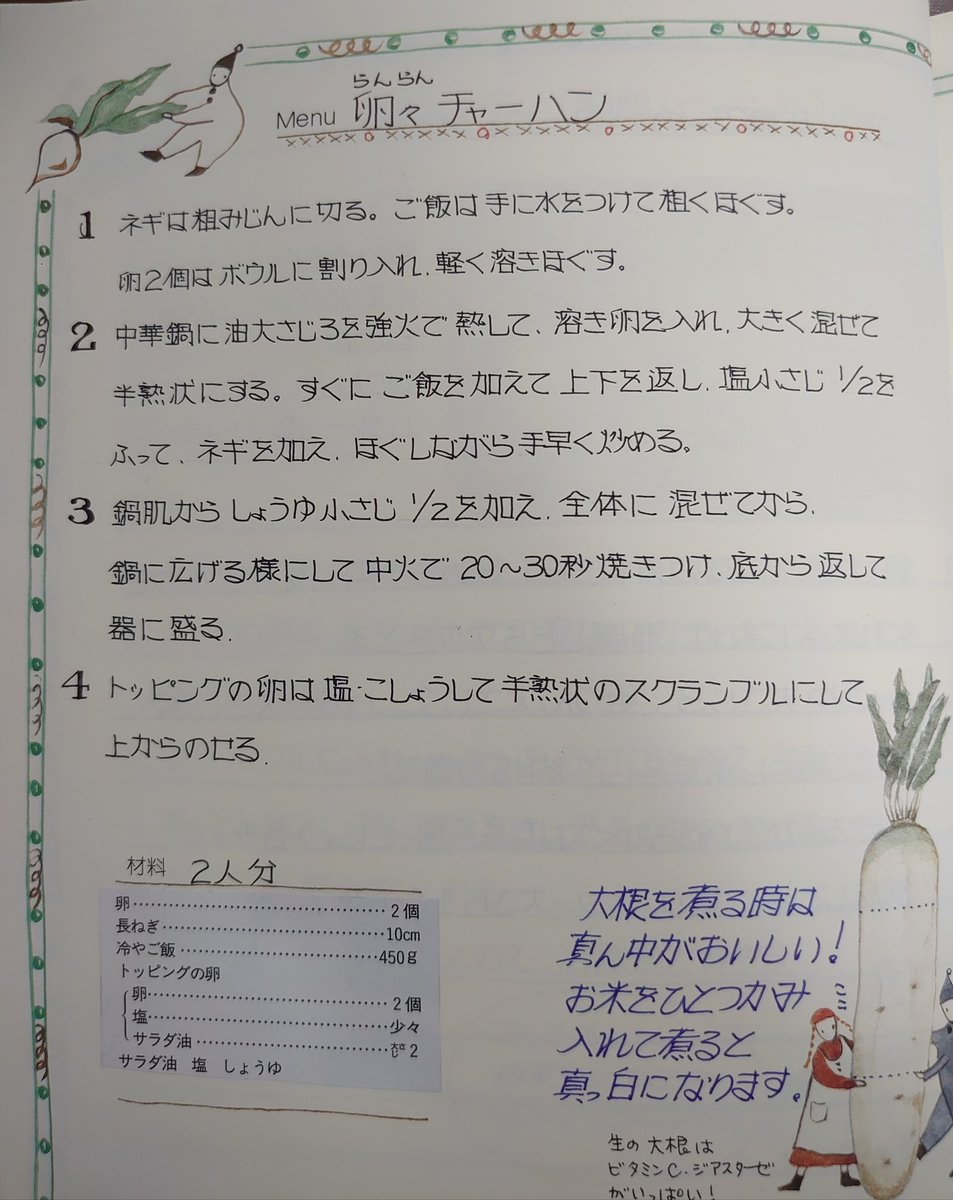 らんらん
Menu 卵々チャーハン
1 ネギは粗みじんに切る。ご飯は手に水をつけて粗くほぐす。
卵2個はボウルに割り入れ、軽く溶きほぐす。
2 中華鍋に油大さじ3を強火で熱して、溶き卵を入れ、大きく混ぜて
半熟状にする。すぐにご飯を加えて上下を返し、塩小さじ1/2を
ふって、ネギを加え、ほぐしながら手早く炒める。
3 鍋肌からしょうゆ小さじ1/2を加え、全体に混ぜてから、
鍋に広げる様にして中火で20〜30秒焼きつけ、底から返して
器に盛る。
4 トッピングの卵は塩・こしょうして半熟状のスクランブルにして
上からのせる。
材料 2人分
卵……………………………2個
長ねぎ…………………………10cm
冷やご飯………………………450g
トッピングの卵
卵……………………………2個
塩……………………………少々
サラダ油……………………大さじ2
サラダ油 塩 しょうゆ
大根を煮る時は
真ん中がおいしい!
お米をひとつかみ
入れて煮ると
真っ白になります。
生の大根は
ビタミンC・ジアスターゼ
がいっぱい!